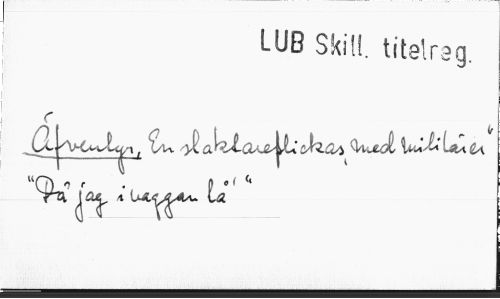 LUB Skill. titelreg.
Äfventyr, En slaktareflickas, med militärer"
"Då jag i vaggan låˮ "